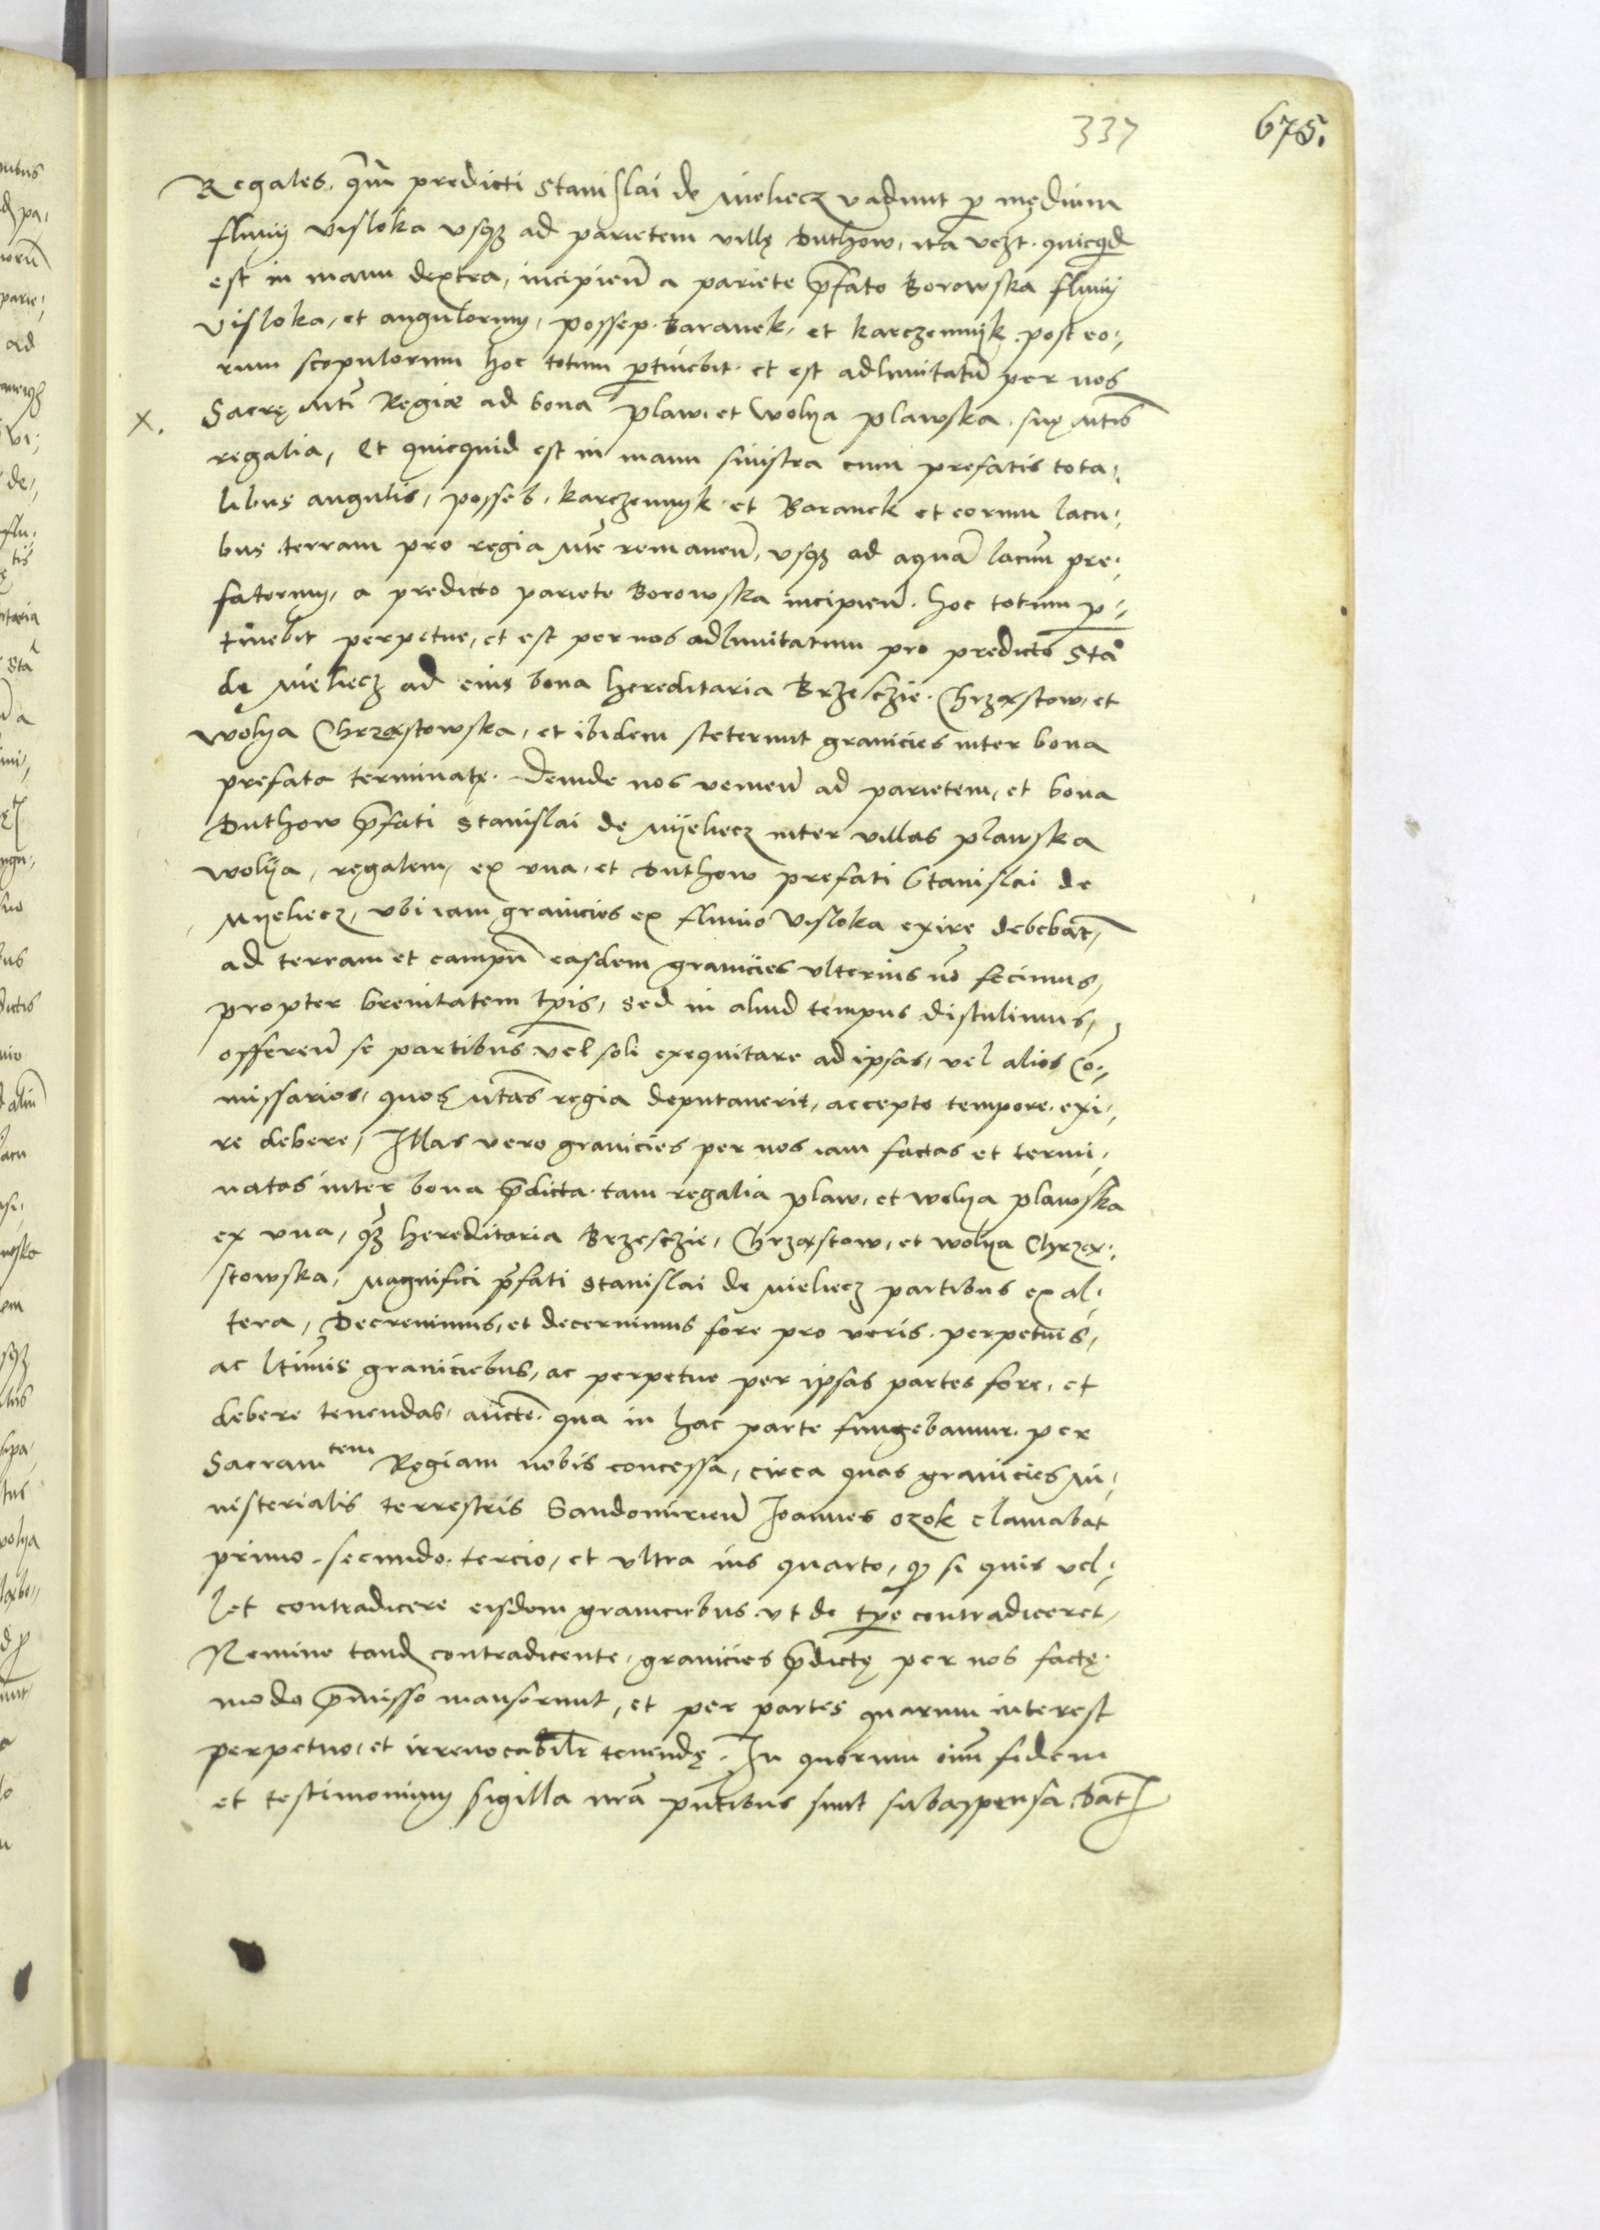 337 675.
Regales, q̃m predicti Stanislai de Mieliecz vadunt p medium
fluuij visloka vsq3 ad parietem villę Duthow, ita vc3t. quicqd
est in manu dextra, incipieñ a pariete p̃fato Borowska fluuij
visloka, et angulorum, possep. Baranek, et karczemnijk. post eo⸗
rum scopulorum hoc totum ptinebit. et est adlimitatũ per nos
X. Sacrę Mti Regiæ ad bona plaw, et wolya plawska. suę Mtis
regalia, Et quicquid est in manu sinistra cum prefatis tota⸗
libus angulis, posseb. karczemnyk et Baranek et eorum lacu⸗
bus terram pro regia Mte remaneñ, vsq3 ad aquã lacuũ pre⸗
fatorum, a predicto pariete Borowska incipieñ. hoc totum p⸗
tinebit perpetue, et est per nos adlimitatum pro predicto Stã
dę Mieliecz ad eius bona hereditaria Brzesczie. Chrząstow, et
wolya Chrząstowska, et ibidem steterunt granicies inter bona
prefata terminatę. Deinde nos venieñ ad parietem, et bona
Duthow p̃fati Stanislai dę Myeliecz inter villas plawska
wolya, regalem, ex vna, et Duthow prefati Stanislai de
Myeliecz, vbi iam granicies ex fluuio visloka exire debebãt,
ad terram et campũ easdem granicies vlterius nõ fecimus,
propter breuitatem tpis, sed in aliud tempus distulimus,
offereñ se partibus vel soli exequitare ad ipsas, vel alios Co⸗
missarios, quos Mtas regia deputauerit, accepto tempore. exi⸗
re debere, Illas vero granicies per nos iam factas et termi⸗
natas inter bona p̃dicta. tam regalia plaw, et wolya plawska
ex vna, q̃3 hereditaria Brzesczie, Chrząstow, et wolya Chrzą⸗
stowska, Magnifici p̃fati Stanislai de Mieliecz partibus ex al⸗
tera, Decreuimus, et decernimus fore pro veris. perpetuis,
ac ltimis graniciebus, ac perpetue per ipsas partes fore, et
debere tenendas, aucte. qua in hac parte fungebamur. per
Sacram tem Regiam nobis concessa, circa quas granicies Mi⸗
nisterialis terrestris Sandomirieñ Joannes ozok clamabat
primo. secundo. tercio, et vltra ius quarto, q̃ si quis vel⸗
let contradicere eisdem graniciebus vt de tpe contradiceret,
Nemine tand contradicente, granicies p̃dictę per nos factę.
modo p̃misso manserunt, et per partes quarum interest
perpetuo, et irreuocabilr tenendę. In quorum oim fidem
et testimonium sigilla nrã pñtibus sunt subappensa. Dat